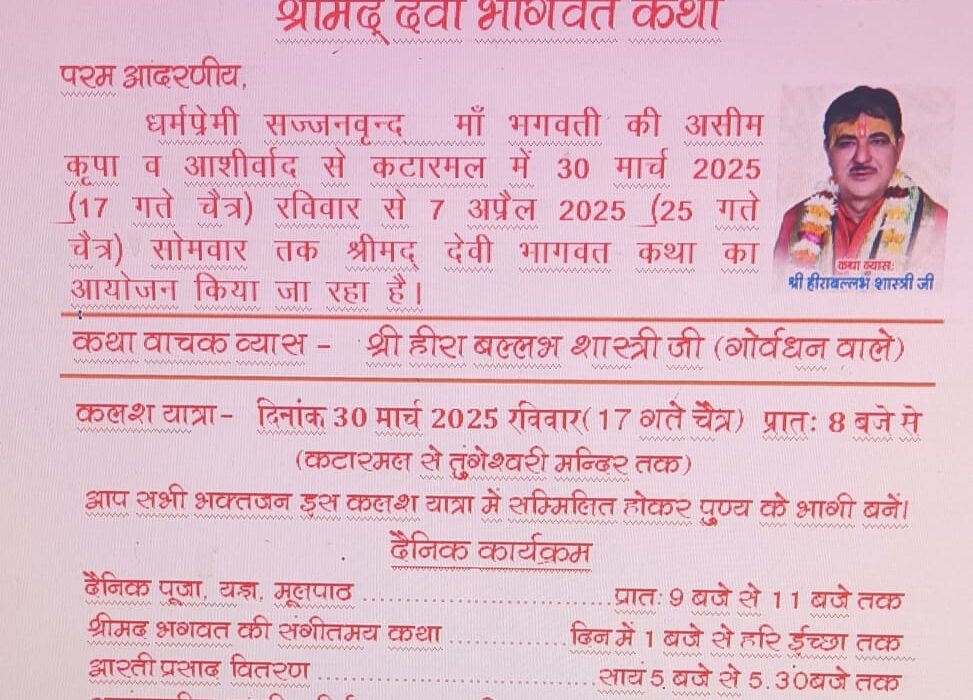 श्रीमद् देवी भागवत कथा
परम आदरणीय,
धर्मप्रेमी सज्जनवृन्द माँ भगवती की असीम
कृपा व आशीर्वाद से कटारमल में 30 मार्च 2025
(17 गते चैत्र) रविवार से 7 अप्रैल 2025 (25 गते
चैत्र) सोमवार तक श्रीमद् देवी भागवत कथा का
आयोजन किया जा रहा है।
कथा व्यास:
श्री हीराबल्लभ शास्त्री जी
कथा वाचक व्यास - श्री हीरा बल्लभ शास्त्री जी (गोर्वधन वाले)
कलश यात्रा- दिनांक 30 मार्च 2025 रविवार( 17 गते चैत्र) प्रात: 8 बजे से
(कटारमल से तुंगेश्वरी मन्दिर तक)
आप सभी भक्तजन इस कलश यात्रा में सम्मिलित होकर पुण्य के भागी बनें।
दैनिक कार्यक्रम
दैनिक पूजा, यज्ञ, मूलपाठ ........................ प्रात: 9 बजे से 11 बजे तक
श्रीमद भगवत की संगीतमय कथा ............ दिन में 1 बजे से हरि ईच्छा तक
आरती प्रसाद वितरण ........................ सायं 5 बजे से 5.30बजे तक